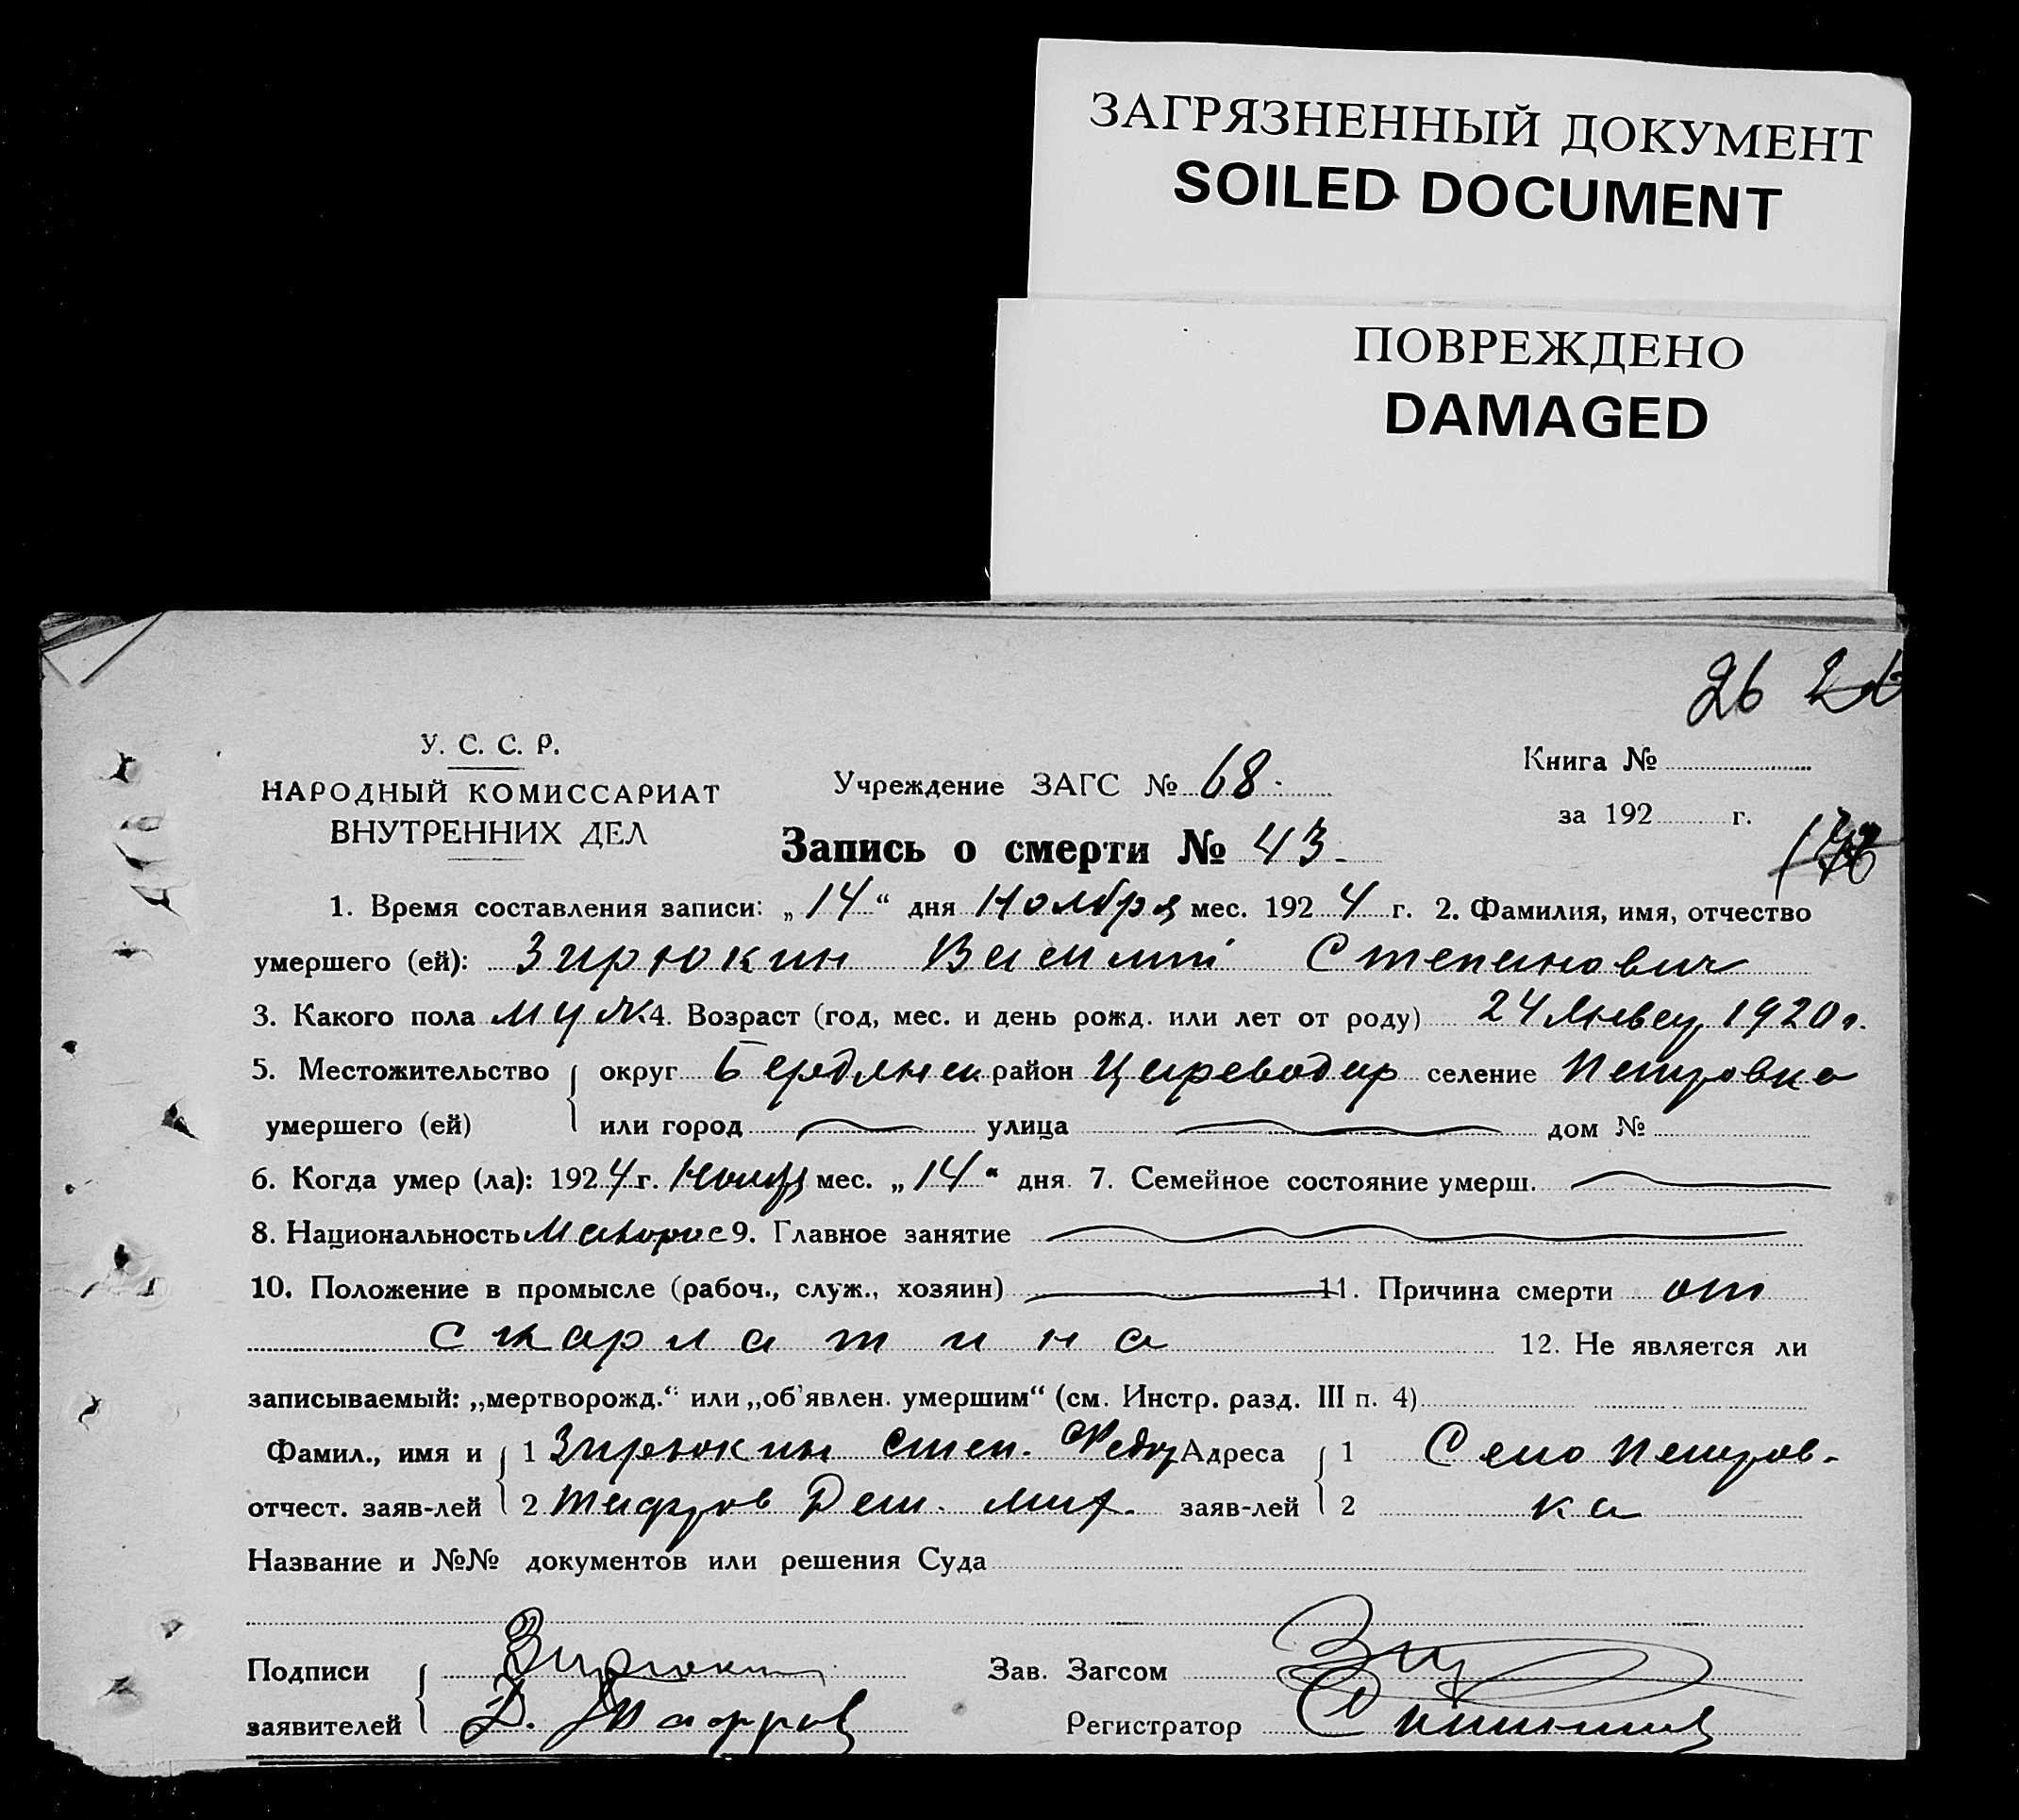 ЗАГРЯЗНЕННЫЙ ДОКУМЕНТ
SOILED DOCUMENT
ПОВРЕЖДЕНО
DAMAGED
26 26
У. С. С. Р.
НАРОДНЫЙ КОМИССАРИАТ
ВНУТРЕННИХ ДЕЛ
Учреждение ЗАГС № 68.
Запись о смерти № 43.
Книга №
за 192 г.
1. Время составления записи: „14“ дня Ноября мес. 1924 г. 2. Фамилия, имя, отчество
умершего (ей): Зирюкин Василий Степанович
3. Какого пола муж. 4. Возраст (год, мес. и день рожд. или лет от роду) 24 Январ 1920 г.
5. Местожительство округ Бердянск район Цареводар селение Петровка
умершего (ей) или город улица дом №
6. Когда умер (ла): 1924 г. Ноябр мес. „14“ дня 7. Семейное состояние умерш.
8. Национальность Малорос 9. Главное занятие
10. Положение в промысле (рабоч., служ., хозяин) 11. Причина смерти от
скарлатина 12. Не является ли
записываемый: „мертворожд.“ или „об'явлен. умершим“ (см. Инстр. разд. III п. 4)
Фамил., имя и 1 Зирюкин Степ. Федор Адреса 1 Село Петров-
отчест. заяв-лей 2 заяв-лей 2 ка
Название и №№ документов или решения Суда
Подписи Зирюкин Зав. Загсом
заявителей Д. Регистратор